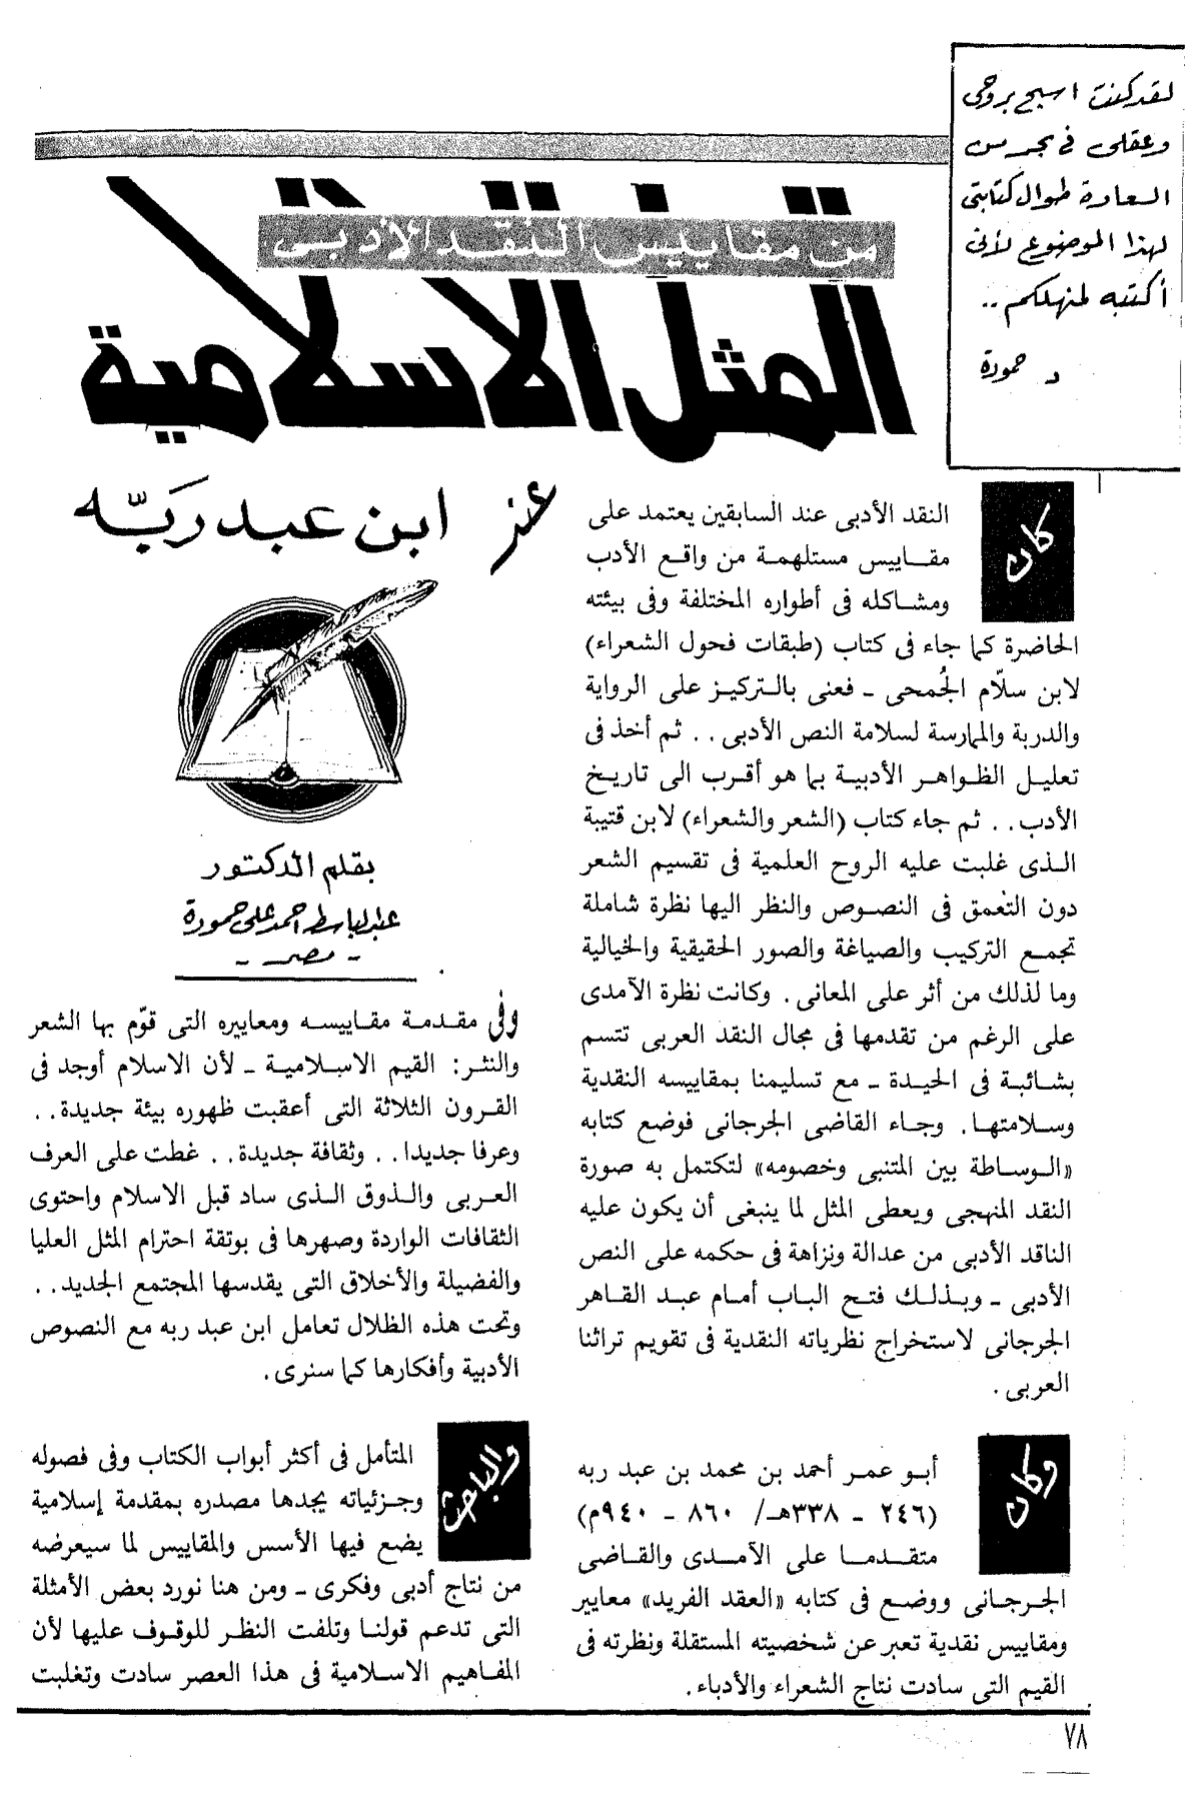 لقد كنت اسبح بروحى
وعقلى فى بحر من
السعادة طوال كتابتى
لهذا الموضوع لأنى
أكتبه لمنهلكم ..
د حمودة
من مقاييس النقد الأدبى
المثل الاسلامية
عند ابن عبد ربّه
بقلم الدكتور
عبدالباسط احمد على حمودة
- مصر -
كان
النقد الأدبى عند السابقين يعتمد على
مقاييس مستلهمة من واقع الأدب
ومشاكله فى أطواره المختلفة وفى بيئته
الحاضرة كما جاء فى كتاب (طبقات فحول الشعراء)
لابن سلّام الجُمحى ـ فعنى بالتركيز على الرواية
والدربة والممارسة لسلامة النص الأدبى . . ثم أخذ فى
تعليل الظواهر الأدبية بما هو أقرب الى تاريخ
الأدب . . ثم جاء كتاب (الشعر والشعراء) لابن قتيبة
الذى غلبت عليه الروح العلمية فى تقسيم الشعر
دون التعمق فى النصوص والنظر اليها نظرة شاملة
تجمع التركيب والصياغة والصور الحقيقية والخيالية
وما لذلك من أثر على المعانى . وكانت نظرة الآمدى
على الرغم من تقدمها فى مجال النقد العربى تتسم
بشائبة فى الحيدة ـ مع تسليمنا بمقاييسه النقدية
وسلامتها . وجاء القاضى الجرجانى فوضع كتابه
«الوساطة بين المتنبى وخصومه» لتكتمل به صورة
النقد المنهجى ويعطى المثل لما ينبغى أن يكون عليه
الناقد الأدبى من عدالة ونزاهة فى حكمه على النص
الأدبى ـ وبذلك فتح الباب أمام عبد القاهر
الجرجانى لاستخراج نظرياته النقدية فى تقويم تراثنا
العربى .
وكان
أبو عمر أحمد بن محمد بن عبد ربه
(٢٤٦ ـ ٣٣٨هـ/ ٨٦٠ ـ ٩٤٠م)
متقدما على الآمدى والقاضى
الجرجانى ووضع فى كتابه «العقد الفريد» معايير
ومقاييس نقدية تعبر عن شخصيته المستقلة ونظرته فى
القيم التى سادت نتاج الشعراء والأدباء .
وفى مقدمة مقاييسه ومعاييره التى قوّم بها الشعر
والنثر: القيم الاسلامية ـ لأن الاسلام أوجد فى
القرون الثلاثة التى أعقبت ظهوره بيئة جديدة . .
وعرفا جديدا . . وثقافة جديدة . . غطت على العرف
العربى والذوق الذى ساد قبل الاسلام واحتوى
الثقافات الواردة وصهرها فى بوتقة احترام المثل العليا
والفضيلة والأخلاق التى يقدسها المجتمع الجديد . .
وتحت هذه الظلال تعامل ابن عبد ربه مع النصوص
الأدبية وأفكارها كما سنرى .
والباحث
المتأمل فى أكثر أبواب الكتاب وفى فصوله
وجزئياته يجدها مصدره بمقدمة إسلامية
يضع فيها الأسس والمقاييس لما سيعرضه
من نتاج أدبى وفكرى ـ ومن هنا نورد بعض الأمثلة
التى تدعم قولنا وتلفت النظر للوقوف عليها لأن
المفاهيم الاسلامية فى هذا العصر سادت وتغلبت
٧٨